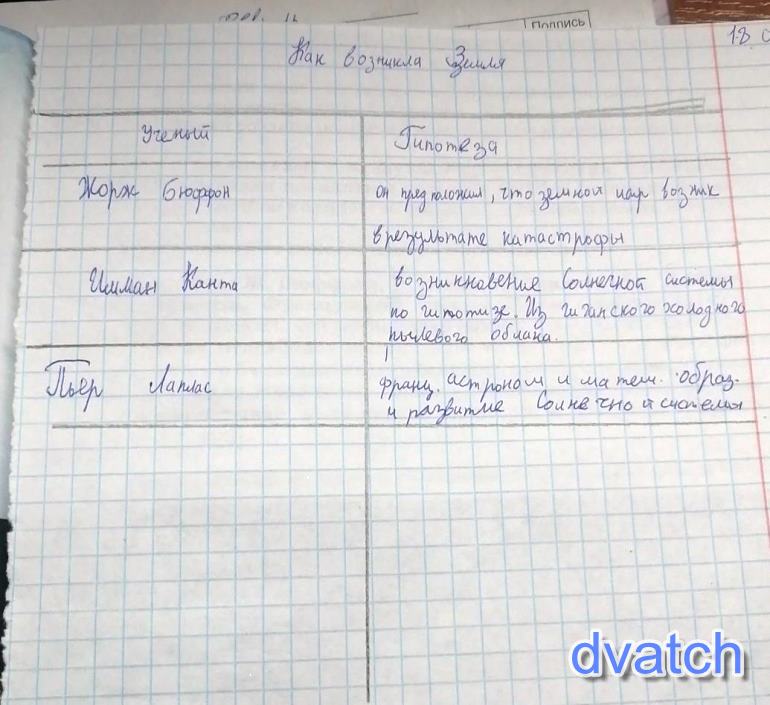 Подпись
18
Как возникла Земля
Ученый
Гипотеза
Жорж Бюффон
он предположил, что земной шар возник
в результате катастрофы
Имман Канта
возникновение Солнечной системы
по гипотизе. Из гиганского холодного
пылевого облака.
Пьер Лаплас
франц. астроном и матем. образ.
и развитие Солнечной системы
dvatch